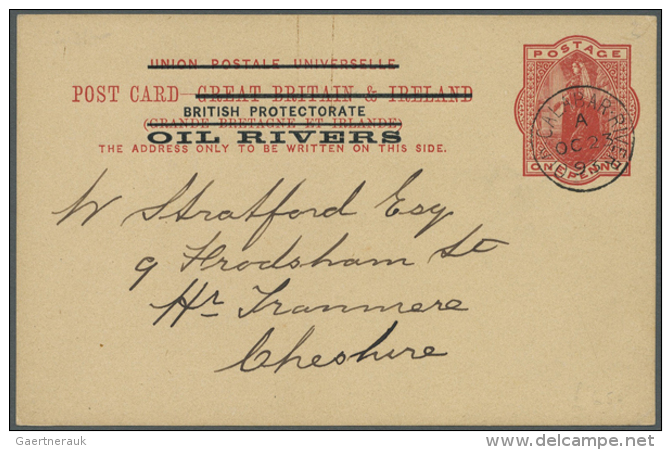 UNION POSTALE UNIVERSELLE
POST CARD GREAT BRITAIN & IRELAND
BRITISH PROTECTORATE
(GRANDE BRETAGNE ET IRLANDE)
OIL RIVERS
THE ADDRESS ONLY TO BE WRITTEN ON THIS SIDE.
POSTAGE
ONE PENNY
CALABAR RIVER
A
OC 23
93
W Stratford Esq
9 Frodsham St
Hr Tranmere
Cheshire
Gaertnerauk
www.delcampe.net